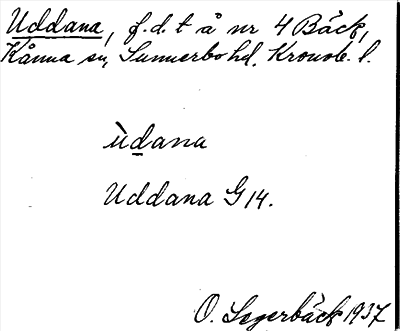 Uddana, f.d. t å nr 4 Bäck,
Kånna sn, Sunnerbo hd, Kronob. l.
ùdana
Uddana G 14.
O. Segerbäck 1937